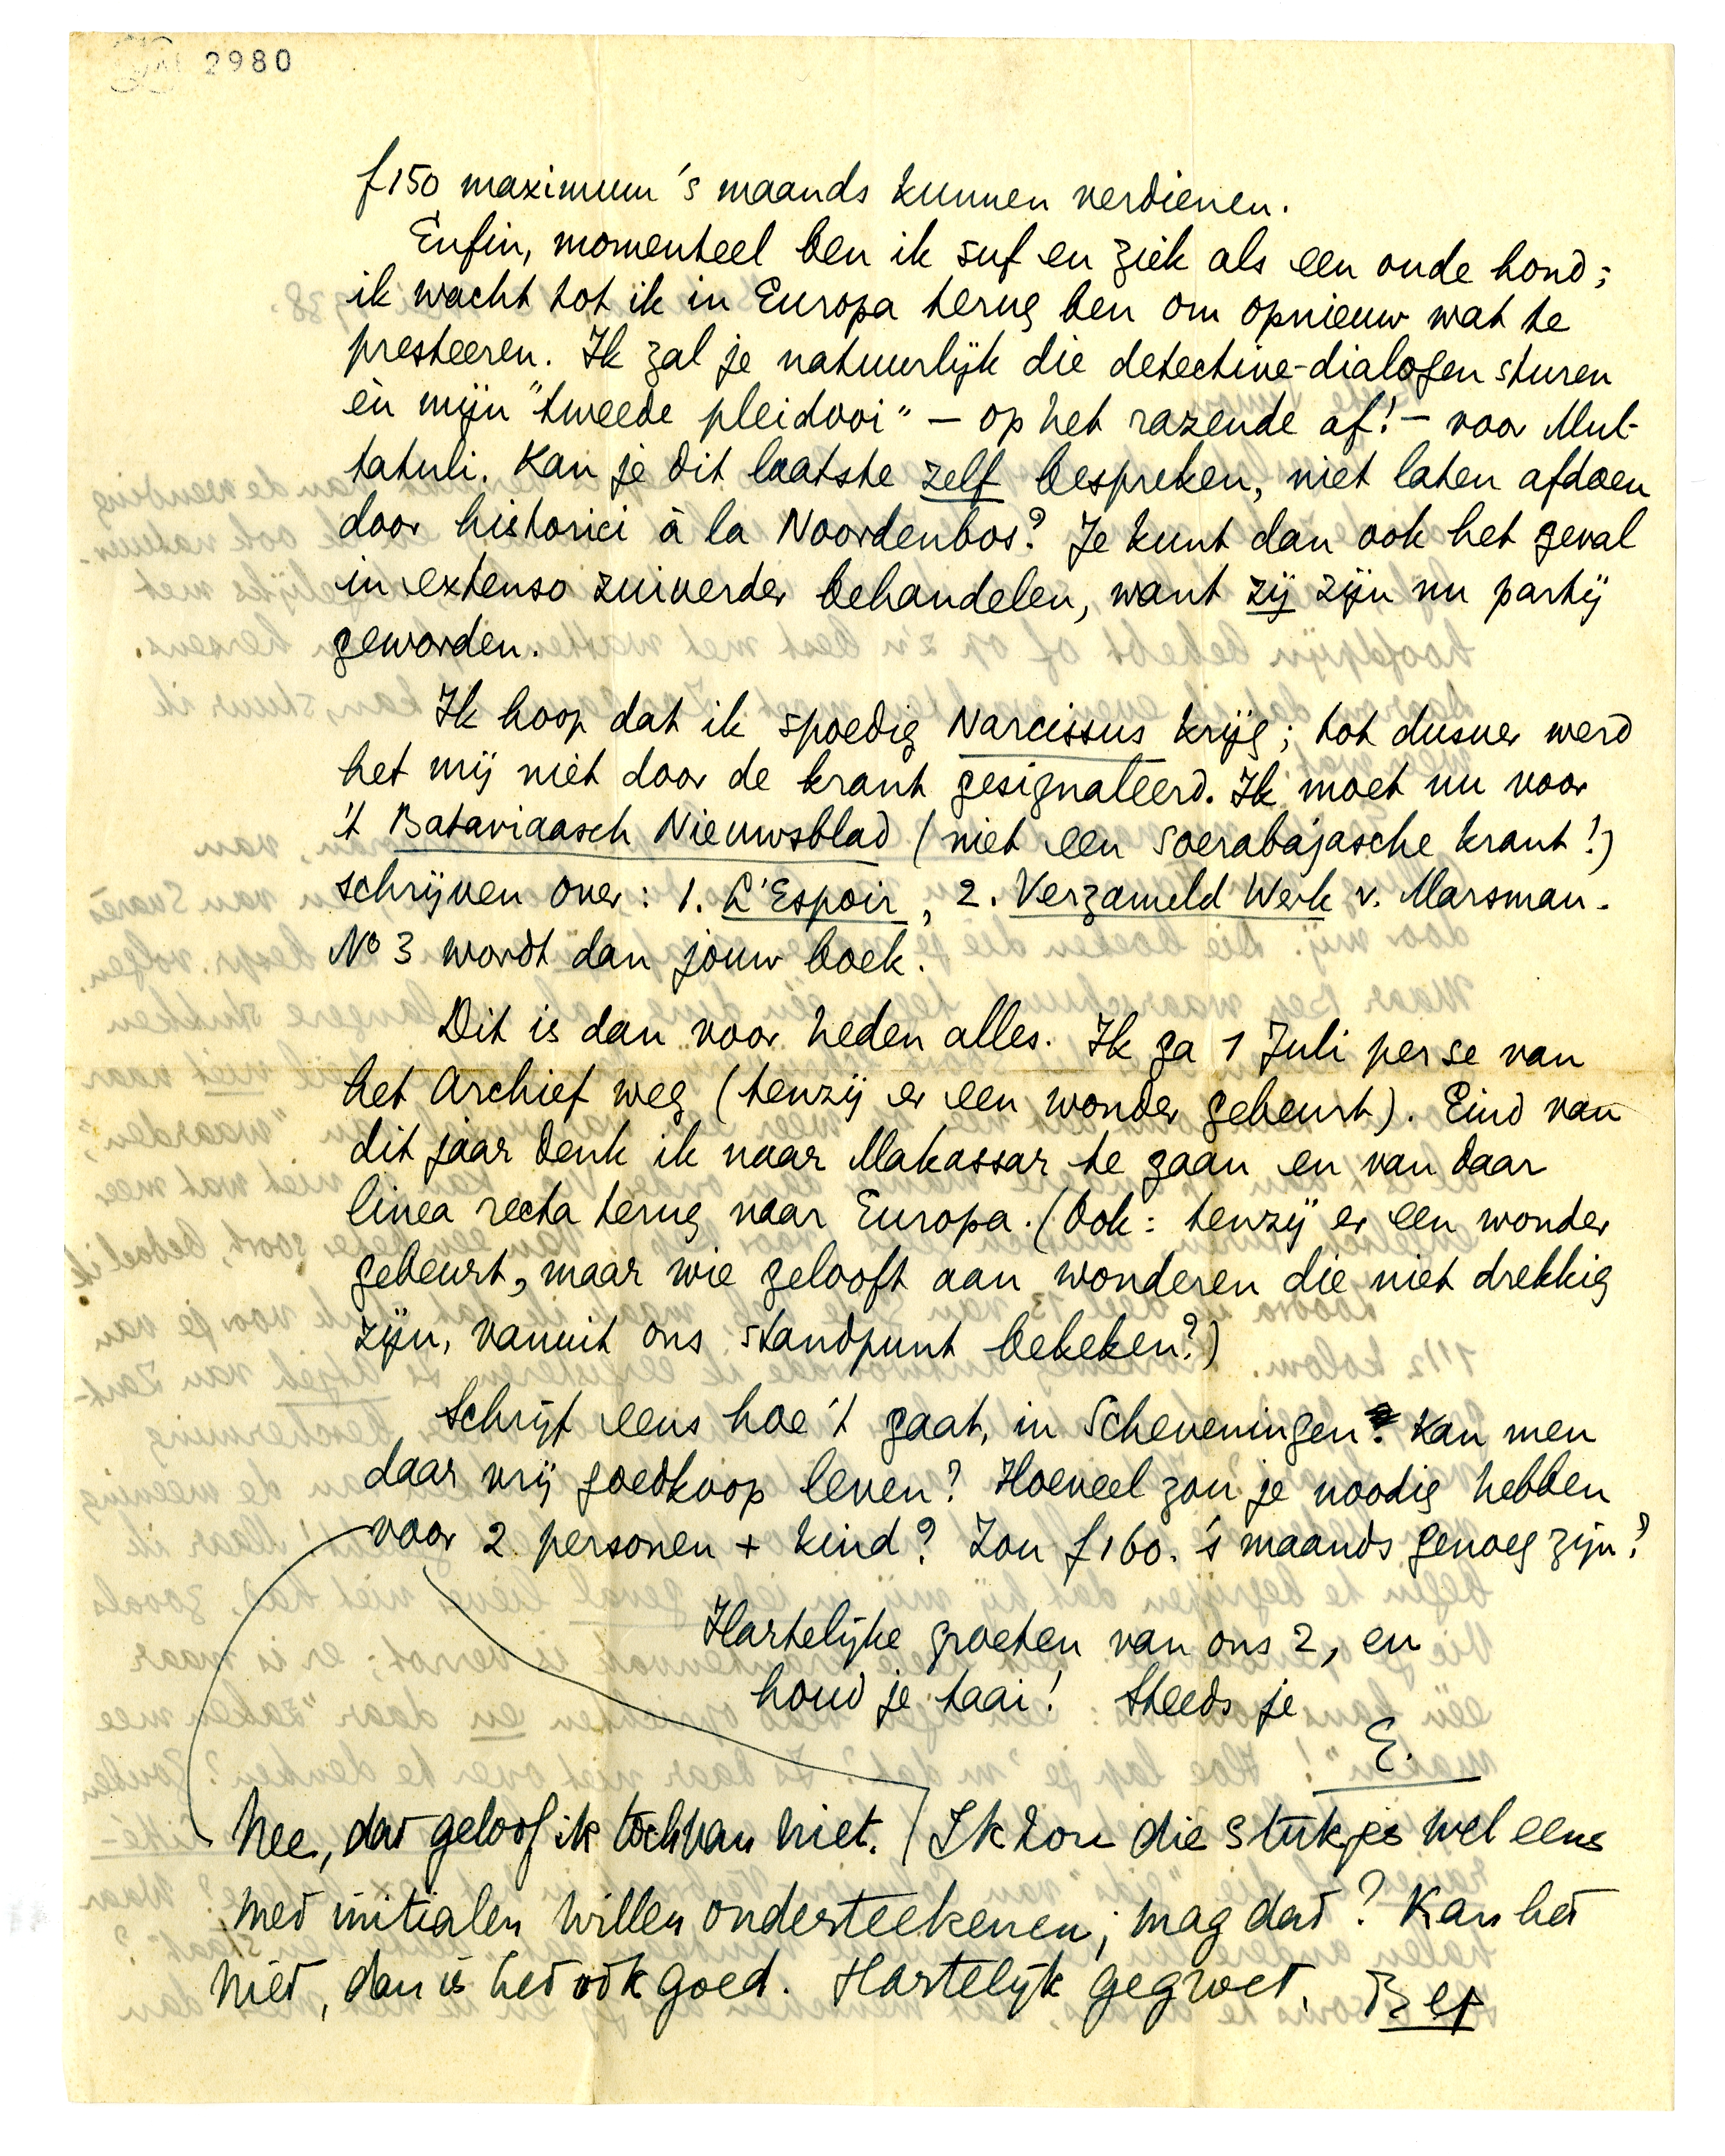 2980
f 150 maximum 's maands kunnen verdienen.
Enfin, momenteel ben ik suf en ziek als een oude hond;
ik wacht tot ik in Europa terug ben om opnieuw wat te
presteeren. Ik zal je natuurlijk die detective-dialogen sturen
èn mijn "tweede pleidooi" – op het razende af! – voor Mul-
tatuli. Kan je dit laatste zelf bespreken, niet laten afdoen
door historici à la Noordenbos? Je kunt dan ook het geval
in extenso zuiverder behandelen, want zij zijn nu partij
geworden.
Ik hoop dat ik spoedig Narcissus krijg; tot dusver werd
het mij niet door de krant gesignaleerd. Ik moet nu voor
't Bataviaasch Nieuwsblad (niet een Soerabajasche krant!)
schrijven over: 1. L'Espoir, 2. Verzameld Werk v. Marsman.
No 3 wordt dan jouw boek.
Dit is dan voor heden alles. Ik ga 1 Juli per se van
het Archief weg (tenzij er een wonder gebeurt). Eind van
dit jaar denk ik naar Makassar te gaan en van daar
linea recta terug naar Europa. (Ook: tenzij er een wonder
gebeurt, maar wie gelooft aan wonderen die niet drekkig
zijn, vanuit ons standpunt bekeken?)
Schrijf eens hoe 't gaat, in Scheveningen. Kan men
daar vrij goedkoop leven? Hoeveel zou je noodig hebben
voor 2 personen + kind? Zou f 160. 's maands genoeg zijn?
Hartelijke groeten van ons 2, en
houd je taai! Steeds je
E.
Nee, dat geloof ik toch van niet. / Ik zou die stukjes wel eens
met initialen willen onderteekenen; mag dat? Kan het
niet, dan is het ook goed. Hartelijk gegroet, Bep